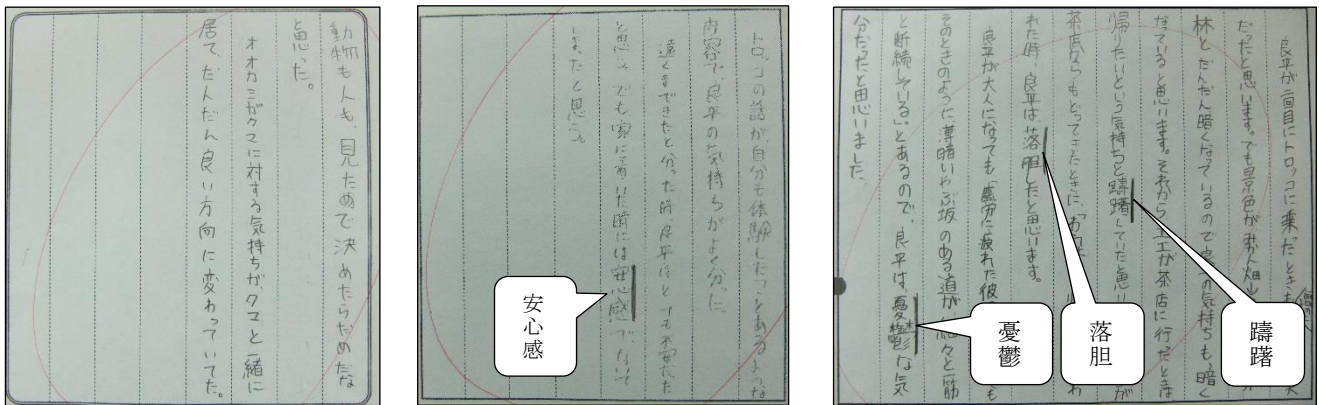 動物も人も、見ためで決めたらだめだな
と思った。
オオカミがクマに対する気持ちが、クマと一緒に
居てだんだん良い方向に変わっていてた。
トロッコの話が自分も体験したことあるような
内容で、良平の気持ちがよく分った。
遠くまできたと分った時、良平はとても不安だった
と思う。でも、家に着いた時には安心感で、ないて
しまったと思う。
安心感
良平が二回目にトロッコに乗ったとき
だったと思います。でも景色がみかん畑
林とだんだん暗くなっているので良平の気持ちも、暗く
なっていると思います。それから、土工が茶店に行ったときは
帰りたいという気持ちと躊躇していたと思い
茶店からもどってきたときに、「われは
れた時、良平は、落胆したと思います。
良平が大人になっても、「塵労に疲れた彼
そのときのように、薄暗いやぶ坂のある道が、細々と一筋
と断続している。」とあるので、良平は、憂鬱な気
分だったと思いました。
躊躇
落胆
憂鬱